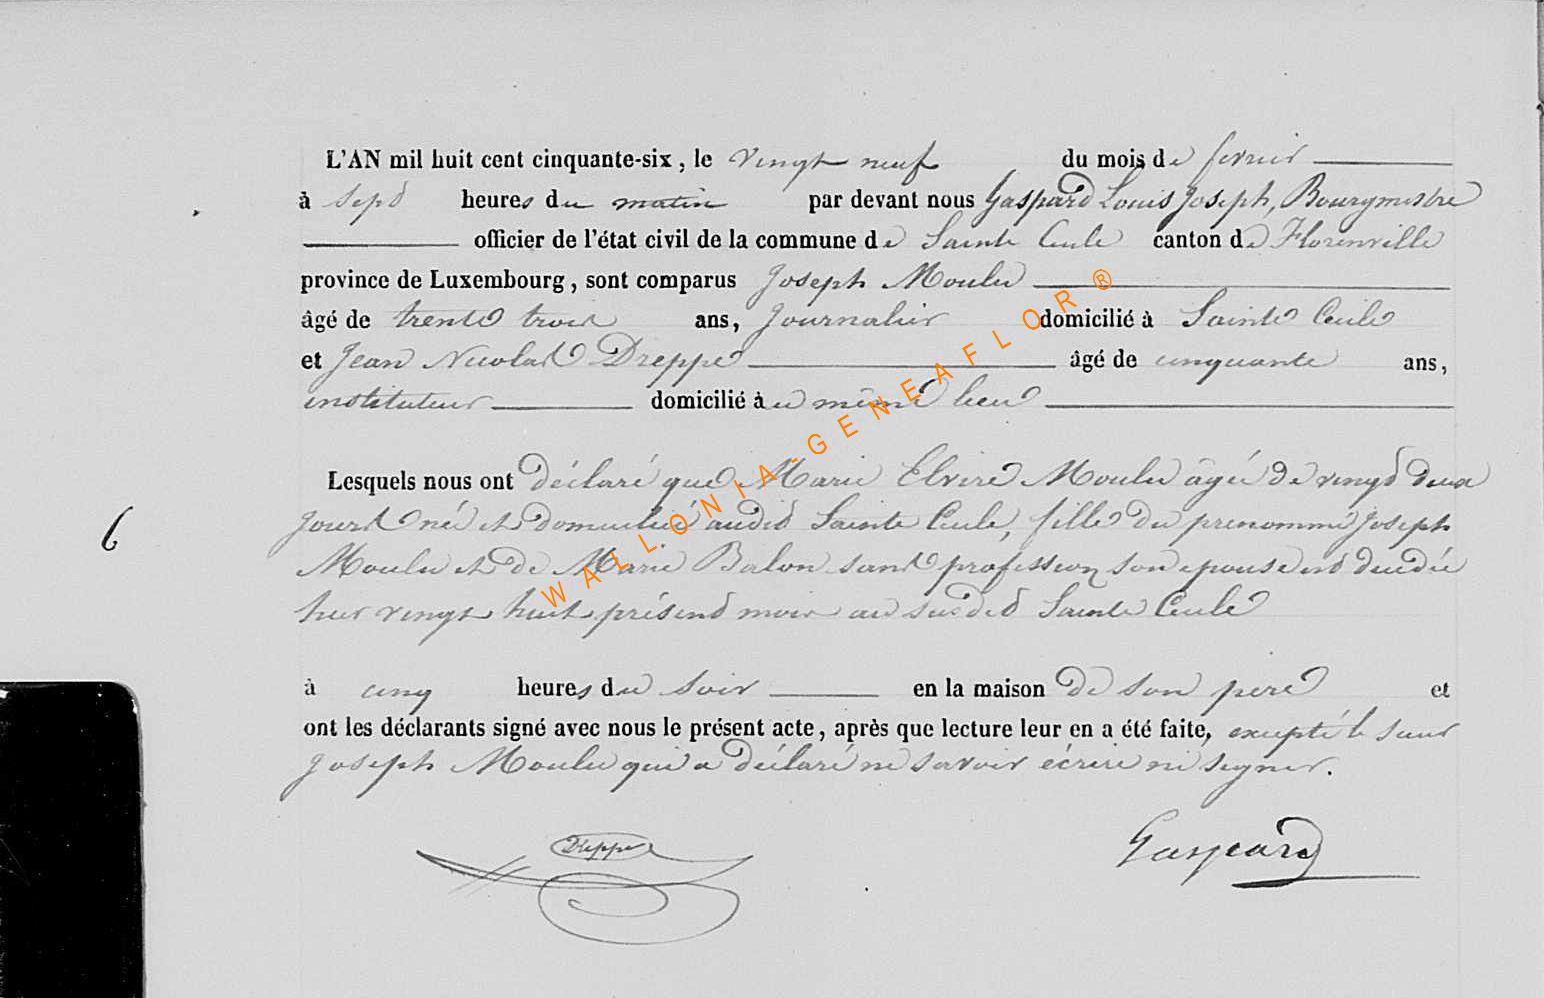 L'AN mil huit cent cinquante-six, le vingt neuf du mois de fevrier
à sept heures du matin par devant nous Gaspard Louis Joseph, Bourgmestre
officier de l'état civil de la commune de Sainte Cecile canton de Florenville
province de Luxembourg, sont comparus Joseph Moulu
âgé de trente trois ans, Journalier domicilié à Sainte Cecile
et Jean Nicolas Dreppe âgé de cinquante ans,
instituteur domicilié au même lieu
Lesquels nous ont déclaré que Marie Elvire Moulu âgée de vingt deux
jours née et domiciliée audit Sainte Cecile, fille du prenommé Joseph
6
Moulu et de Marie Balon sans profession son epouse est decedée
hier vingt huit présent mois au susdit Sainte Cecile
à cinq heures du soir en la maison de son pere et
ont les déclarants signé avec nous le présent acte, après que lecture leur en a été faite, excepté le sieur
Joseph Moulu qui a déclaré ne savoir écrire ni signer.
Dreppe
Gaspard
WALLONIA-GENEAFLOR®